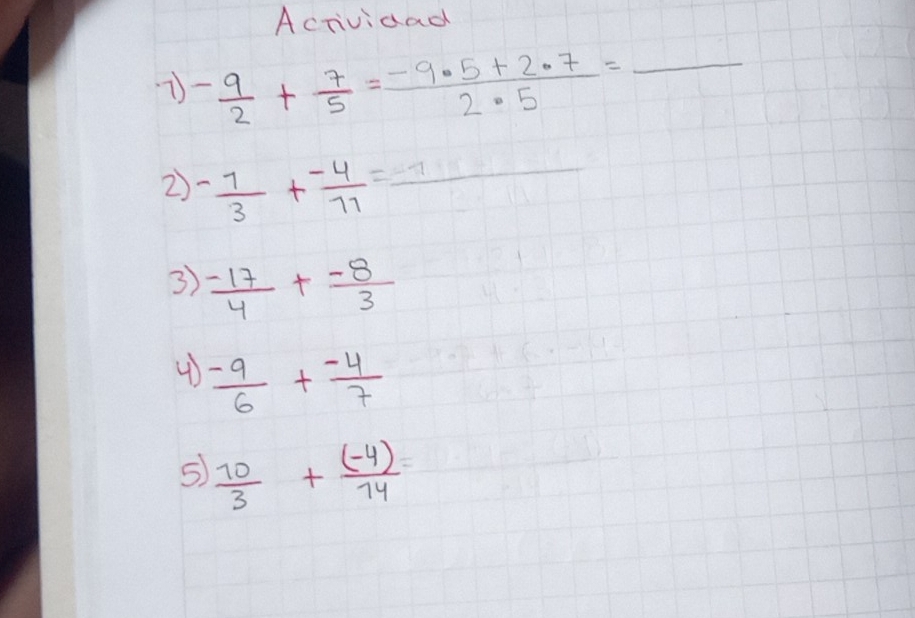 Actividad
1) -9/2 + 7/5 = -9•5+2•7/2•5 = ____
2) -1/3 + -4/11 = -1
3) -17/4 + -8/3
4) -9/6 + -4/7
5) 10/3 + (-4)/14 =